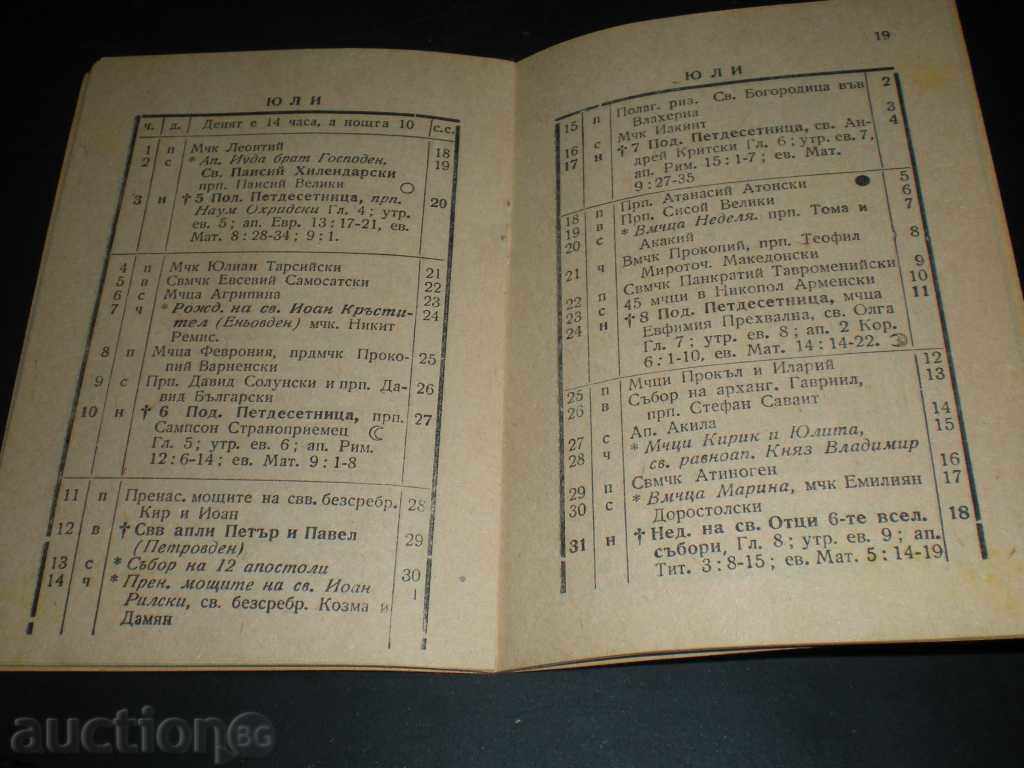 ЮЛИ
ч. д. Денят е 14 часа, а нощта 10 с.с.
1 п Мчк Леонтий 18
2 с * Ап. Иуда брат Господен. 19
Св. Паисий Хилендарски
прп. Паисий Велики
3 н † 5 Под. Петдесетница, прп. 20
Наум Охридски Гл. 4; утр.
ев. 5; ап. Евр. 13:17-21, ев.
Мат. 8:28-34; 9:1.
4 п Мчк Юлиан Тарсийски 21
5 в Свмчк Евсевий Самосатски 22
6 с Мчца Агрипина 23
7 ч * Рожд. на св. Иоан Кръсти- 24
тел (Еньовден) мчк. Никит
Ремис.
8 п Мчца Феврония, прдмчк Проко- 25
пий Варненски
9 с Прп. Давид Солунски и прп. Да- 26
вид Български
10 н † 6 Под. Петдесетница, прп. 27
Сампсон Странноприемец
Гл. 5; утр. ев. 6; ап. Рим.
12:6-14; ев. Мат. 9:1-8
11 п Пренас. мощите на свв. безсребр. 28
Кир и Иоан
12 в † Свв апли Петър и Павел 29
(Петровден)
13 с * Събор на 12 апостоли 30
14 ч * Прен. мощите на св. Иоан 1
Рилски, св. безсребр. Козма и
Дамян
19
ЮЛИ
15 п Полаг. риз. Св. Богородица във 2
Влахерна
16 с Мчк Иакинт 3
17 н † 7 Под. Петдесетница, св. Ан- 4
дрей Критски Гл. 6; утр. ев. 7,
ап. Рим. 15:1-7; ев. Мат.
9:27-35
18 п Прп. Атанасий Атонски 5
19 в Прп. Сисой Велики 6
20 с * Вмчца Неделя. прп. Тома и 7
Акакий
21 ч Вмчк Прокопий, прп. Теофил 8
Мироточ. Македонски
22 п Свмчк Панкратий Тавроменийски 9
23 с 45 мчци в Никопол Арменски 10
24 н † 8 Под. Петдесетница, мчца 11
Евфимия Прехвална, св. Олга
Гл. 7; утр. ев. 8; ап. 2 Кор.
6:1-10, ев. Мат. 14:14-22.
25 п Мчци Прокъл и Иларий 12
26 в Събор на арханг. Гавриил, 13
прп. Стефан Саваит
27 с Ап. Акила 14
28 ч * Мчци Кирик и Юлита, 15
св. равноап. Княз Владимир
29 п Свмчк Атиноген 16
30 с * Вмчца Марина, мчк Емилиян 17
Доростолски
31 н † Нед. на св. Отци 6-те всел. 18
събори, Гл. 8; утр. ев. 9; ап.
Тит. 3:8-15; ев. Мат. 5:14-19
auction BG